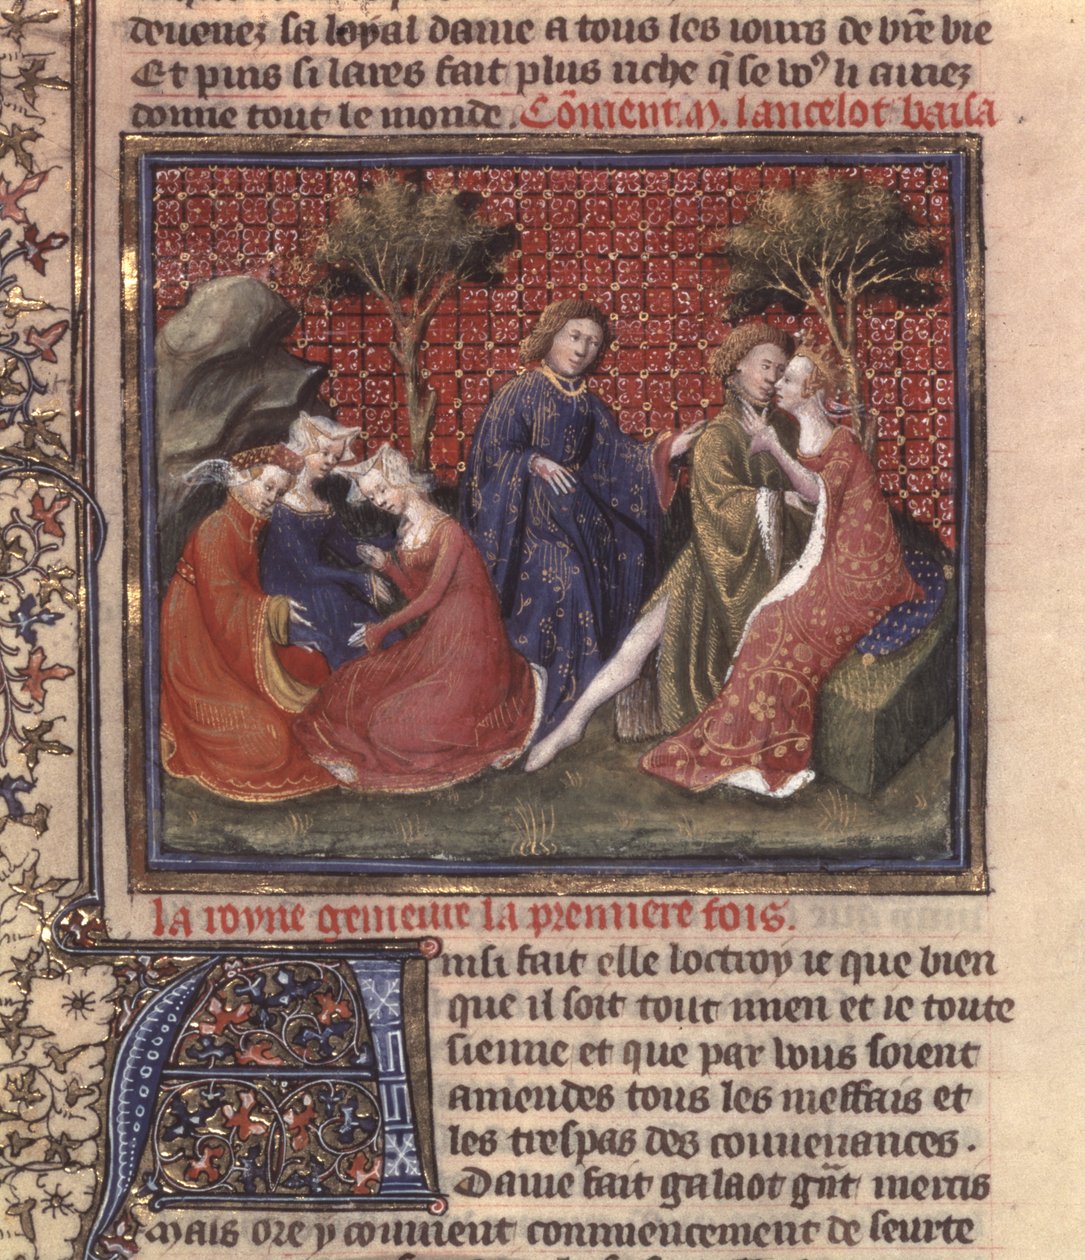 deuenez sa loyal dame a tous les iours de vr̃e vie
Et puis si lares fait plus riche q̃ se voꝰ li auiez
donne tout le monde. Cõment .m̃. lancelot baisa
la royne genieure la premiere fois.
Ainsi fait elle loctroy ie que bien
que il soit tout mien et ie toute
sienne et que par vous soient
amendes tous les meffais et
les trespas des conuenances.
Dame fait galaot gñt mercis
mais ore y conuient commencement de seurte